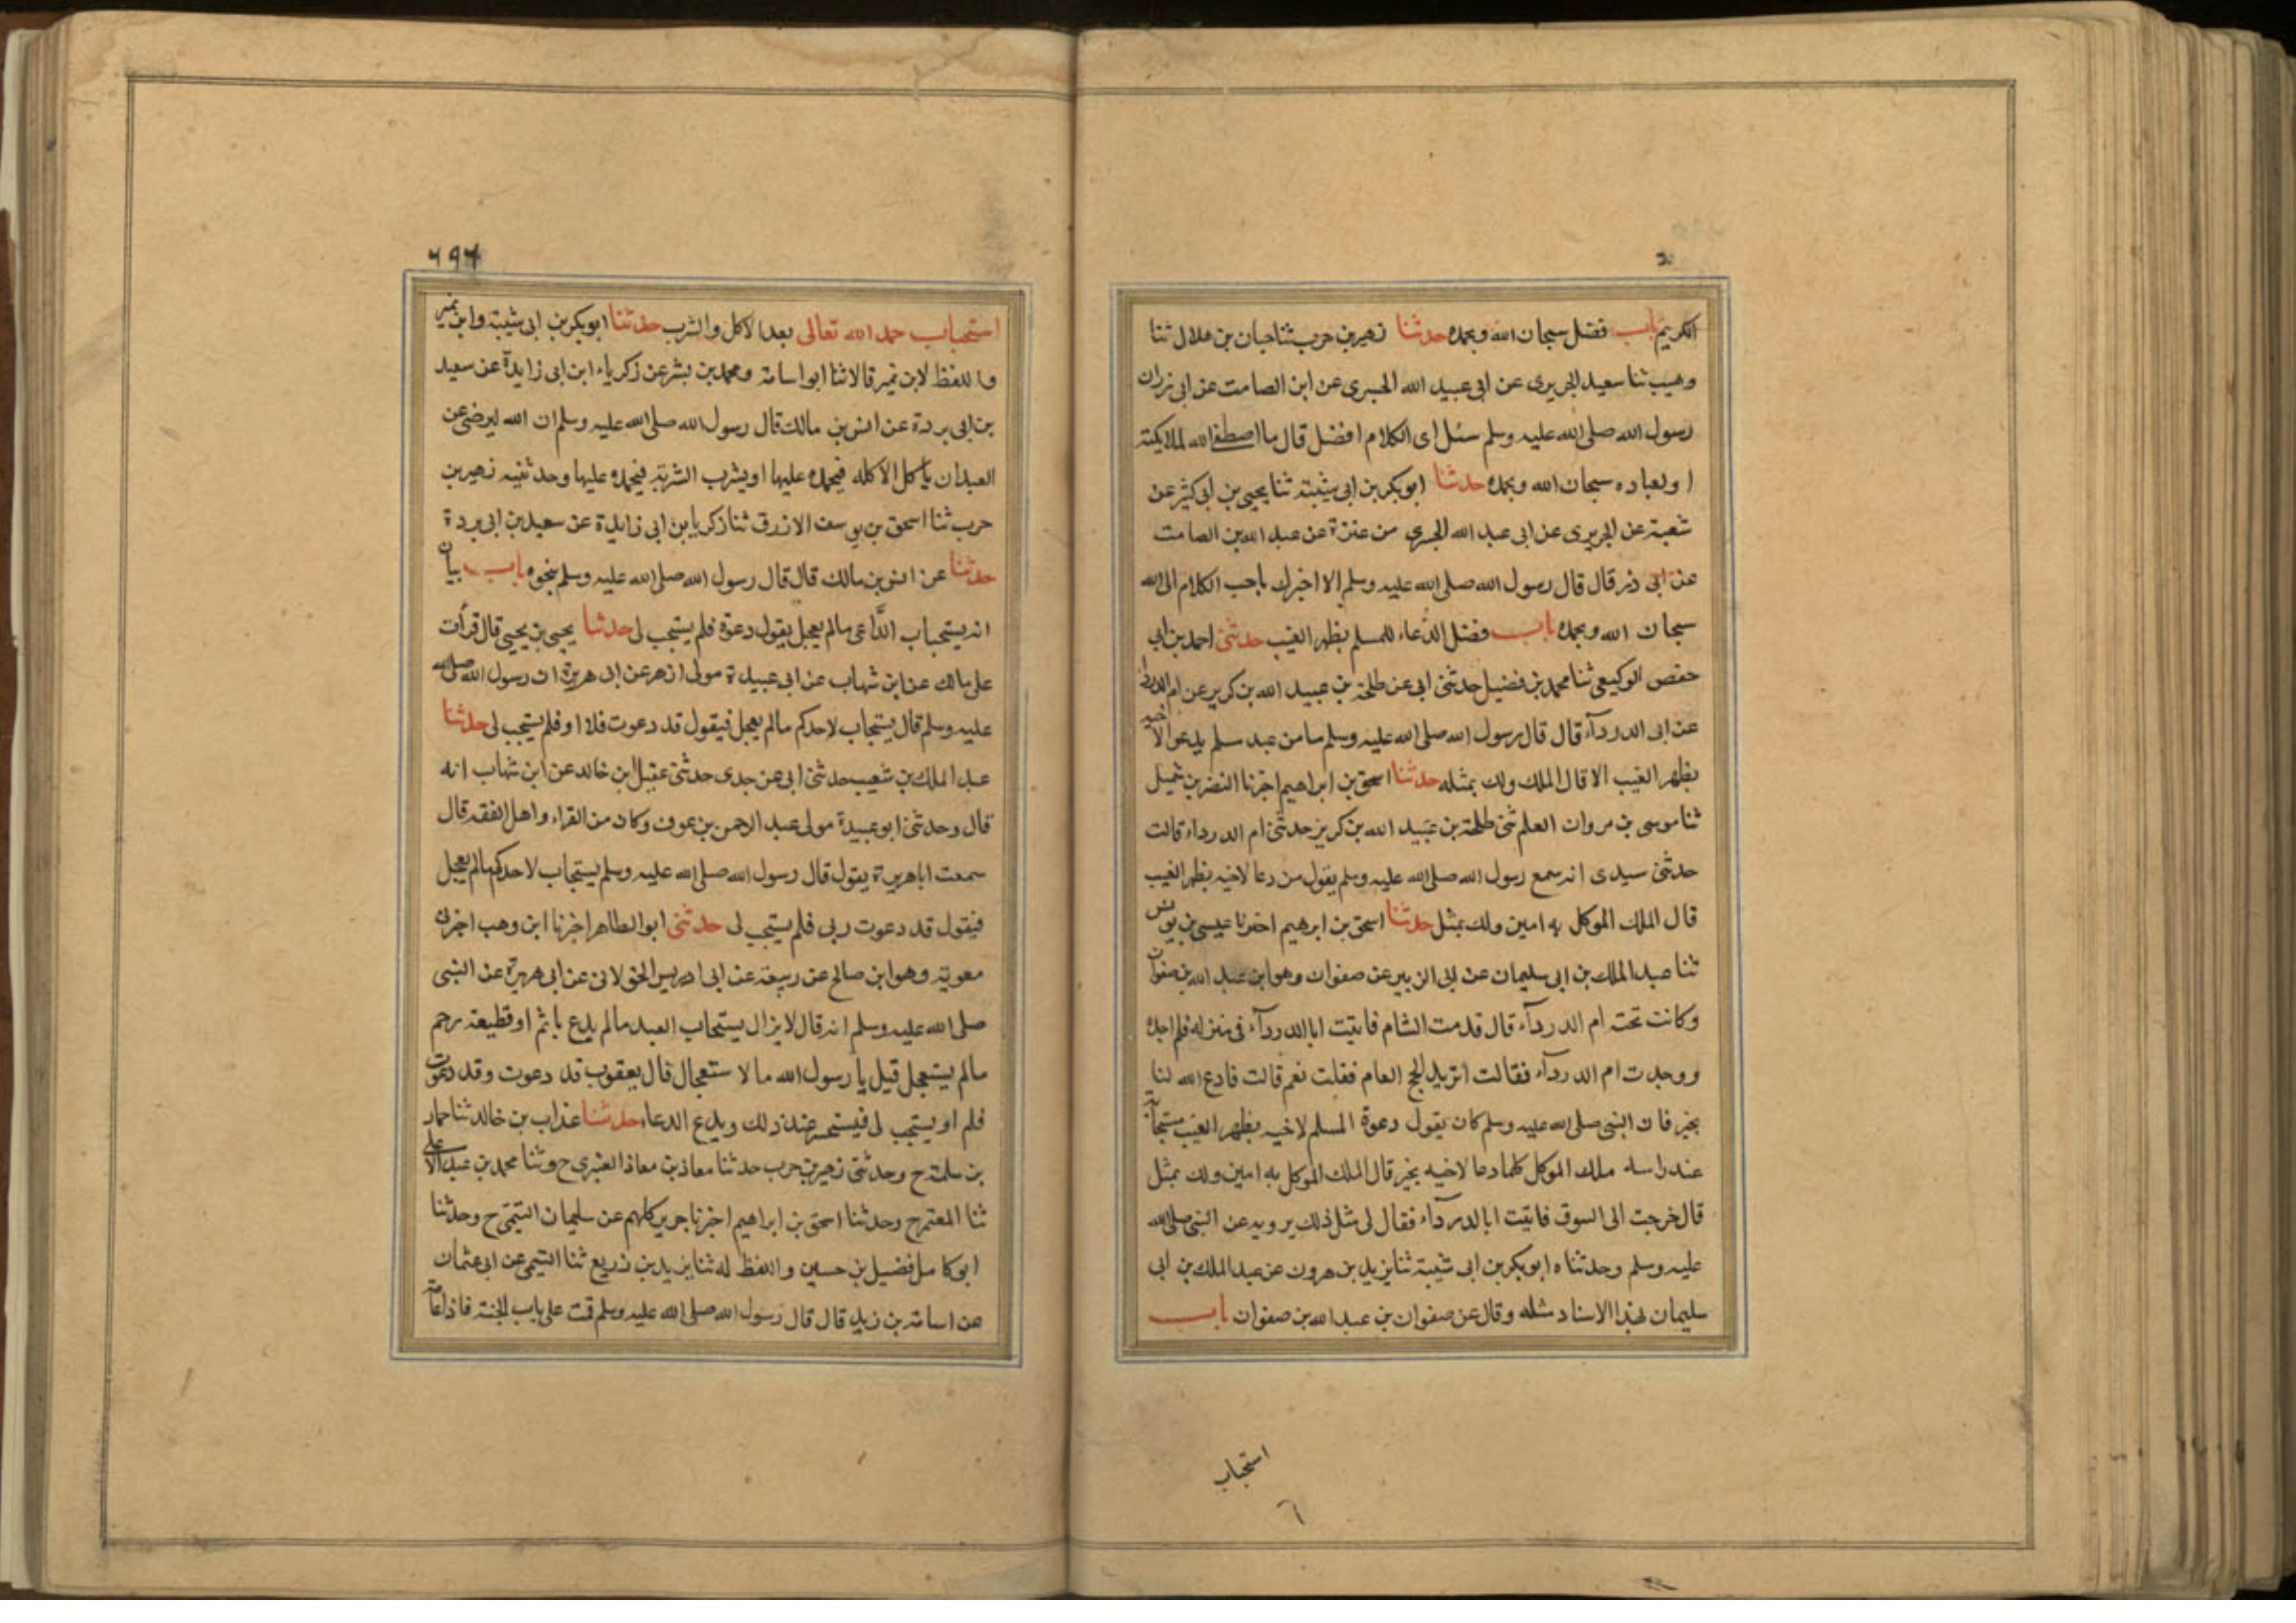 الكريم باب فضل سبحان الله وبحمده حدثنا زهير بن حرب ثنا حبان بن هلال ثنا
وهيب ثنا سعيد الجريري عن ابي عبيد الله الجسري عن ابن الصامت عن ابي ذر ان
رسول الله صلى الله عليه وسلم سئل اى الكلام افضل قال ما اصطفى الله لملايكته
او لعباده سبحان الله وبحمده حدثنا ابو بكر بن ابى شيبته ثنا يحيى بن ابى كثير عن
شعبة عن الجريرى عن ابى عبد الله الجسرى من عنزة عن عبد الله بن الصامت
عن ابى ذر قال قال رسول الله صلى الله عليه وسلم الا اخبرك باحب الكلام الى الله
سبحان الله وبحمده باب فضل الدعاء للمسلم بظهر الغيب حدثنى احمد بن ابى
حفص الوكيعى ثنا محمد بن فضيل حدثنى ابى عن طلحة بن عبيد الله بن كريز عن ام الدردا
عن ابى الدردآء قال قال رسول الله صلى الله عليه وسلم ما من عبد مسلم يدعو لاخيه
بظهر الغيب الا قال الملك ولك بمثله حدثنا اسحق بن ابراهيم اخبرنا النضر بن شميل
ثنا موسى بن مروان العلم ثنى طلحة بن عبيد الله بن كريز حدثتنى ام الدرداء قالت
حدثنى سيدى انه سمع رسول الله صلى الله عليه وسلم يقول من دعا لاخيه بظهر الغيب
قال الملك الموكل به امين ولك بمثل حدثنا اسحق بن ابرهيم اخبرنا عيسى بن يونس
ثنا عبد الملك بن ابى سليمان عن ابى الزبير عن صفوان وهو ابن عبد الله بن صفوان
وكانت تحته ام الدردآء قال قدمت الشام فاتيت ابا الدردآء فى منزله فلم اجده
ووجدت ام الدردآء فقالت اتريد الحج العام فقلت نعم قالت فادع الله لنا
بخير فان النبى صلى الله عليه وسلم كان يقول دعوة المسلم لاخيه بظهر الغيب مستجابة
عند راسه ملك الموكل كلما دعا لاخيه بخير قال الملك الموكل به امين ولك بمثل
قال خرجت الى السوق فاتيت ابا الدردآء فقال لى مثل ذلك يرويه عن النبى صلى الله
عليه وسلم وحدثناه ابو بكر بن ابى شيبة ثنا يزيد بن هرون عن عبد الملك بن ابى
سليمان بهذا الاسناد مثله وقال عن صفوان بن عبد الله بن صفوان باب
استحباب
٦٩٦
استحباب حمد الله تعالى بعد الاكل والشرب حدثنا ابو بكر بن ابى شيبة وابن نمير
واللفظ لابن نمير قالا ثنا ابو اسامة ومحمد بن بشر عن زكرياء ابن ابى زايدة عن سعيد
بن ابى بردة عن انس بن مالك قال رسول الله صلى الله عليه وسلم ان الله ليرضى عن
العبد ان ياكل الاكله فيحمده عليها او يشرب الشربة فيحمده عليها وحدثنيه زهير بن
حرب ثنا اسحق بن يوسف الازرق ثنا زكريا بن ابى زايدة عن سعيد بن ابى بردة
حدثنا عن انس بن مالك قال قال رسول الله صلى الله عليه وسلم بنحوه باب بيان
انه يستجاب الدَّاعى مالم يعجل يقول دعوة فلم يستجب لى حدثنا يحيى بن يحيى قال قرأت
على مالك عن ابن شهاب عن ابى عبيدة مولى ازهر عن ابى هريرة ان رسول الله صلى الله
عليه وسلم قال يستجاب لاحدكم مالم يعجل فيقول قد دعوت فلا او فلم يستجب لى حدثنا
عبد الملك بن شعيب حدثنى ابى عن جدى حدثنى عقيل ابن خالد عن ابن شهاب انه
قال وحدثنى ابو عبيدة مولى عبد الرحمن بن عوف وكان من القراء واهل الفقه قال
سمعت ابا هريرة يقول قال رسول الله صلى الله عليه وسلم يستجاب لاحدكم مالم يعجل
فيقول قد دعوت ربى فلم يستجب لى حدثنى ابو الطاهر اخبرنا ابن وهب اخبرنى
معوية وهو ابن صالح عن ربيعة عن ابى ادريس الخولانى عن ابى هريرة عن النبى
صلى الله عليه وسلم انه قال لا يزال يستجاب العبد مالم يدع باثم او قطيعة رحم
مالم يستعجل قيل يا رسول الله ما لا ستعجال قال يعقوب قد دعوت وقد دعوت
فلم او يستجب لى فيستحسر عند ذلك ويدع الدعاء حدثنا عذاب بن خالد ثنا حماد
بن سلمة ح وحدثنى زهير بن حرب حدثنا معاذ بن معاذ العنبرى ح وثنا محمد بن عبد الاعلى
ثنا المعتمر ح وحدثنا اسحق بن ابراهيم اخبرنا جرير كلهم عن سليمان التيمى ح وحدثنا
ابو كامل فضيل بن حسين واللفظ له ثنا يزيد بن زريع ثنا التيمى عن ابى عثمان
عن اسامة بن زيد قال قال رسول الله صلى الله عليه وسلم قمت على باب الجنة فاذا عامة